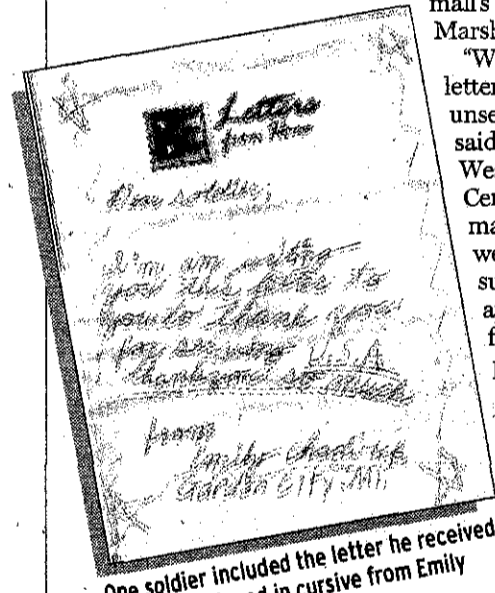 mall's
Marsh
"W
letter
unse
said
We
Cer
ma
we
su
a
f
Letters
from Home
Dear soldier,
I'm am writing
you this letter to
you to thank you
for serving U.S.A
thankyou so much
from
Emily
Garden City, MI.
One soldier included the letter he received
in cursive from Emily